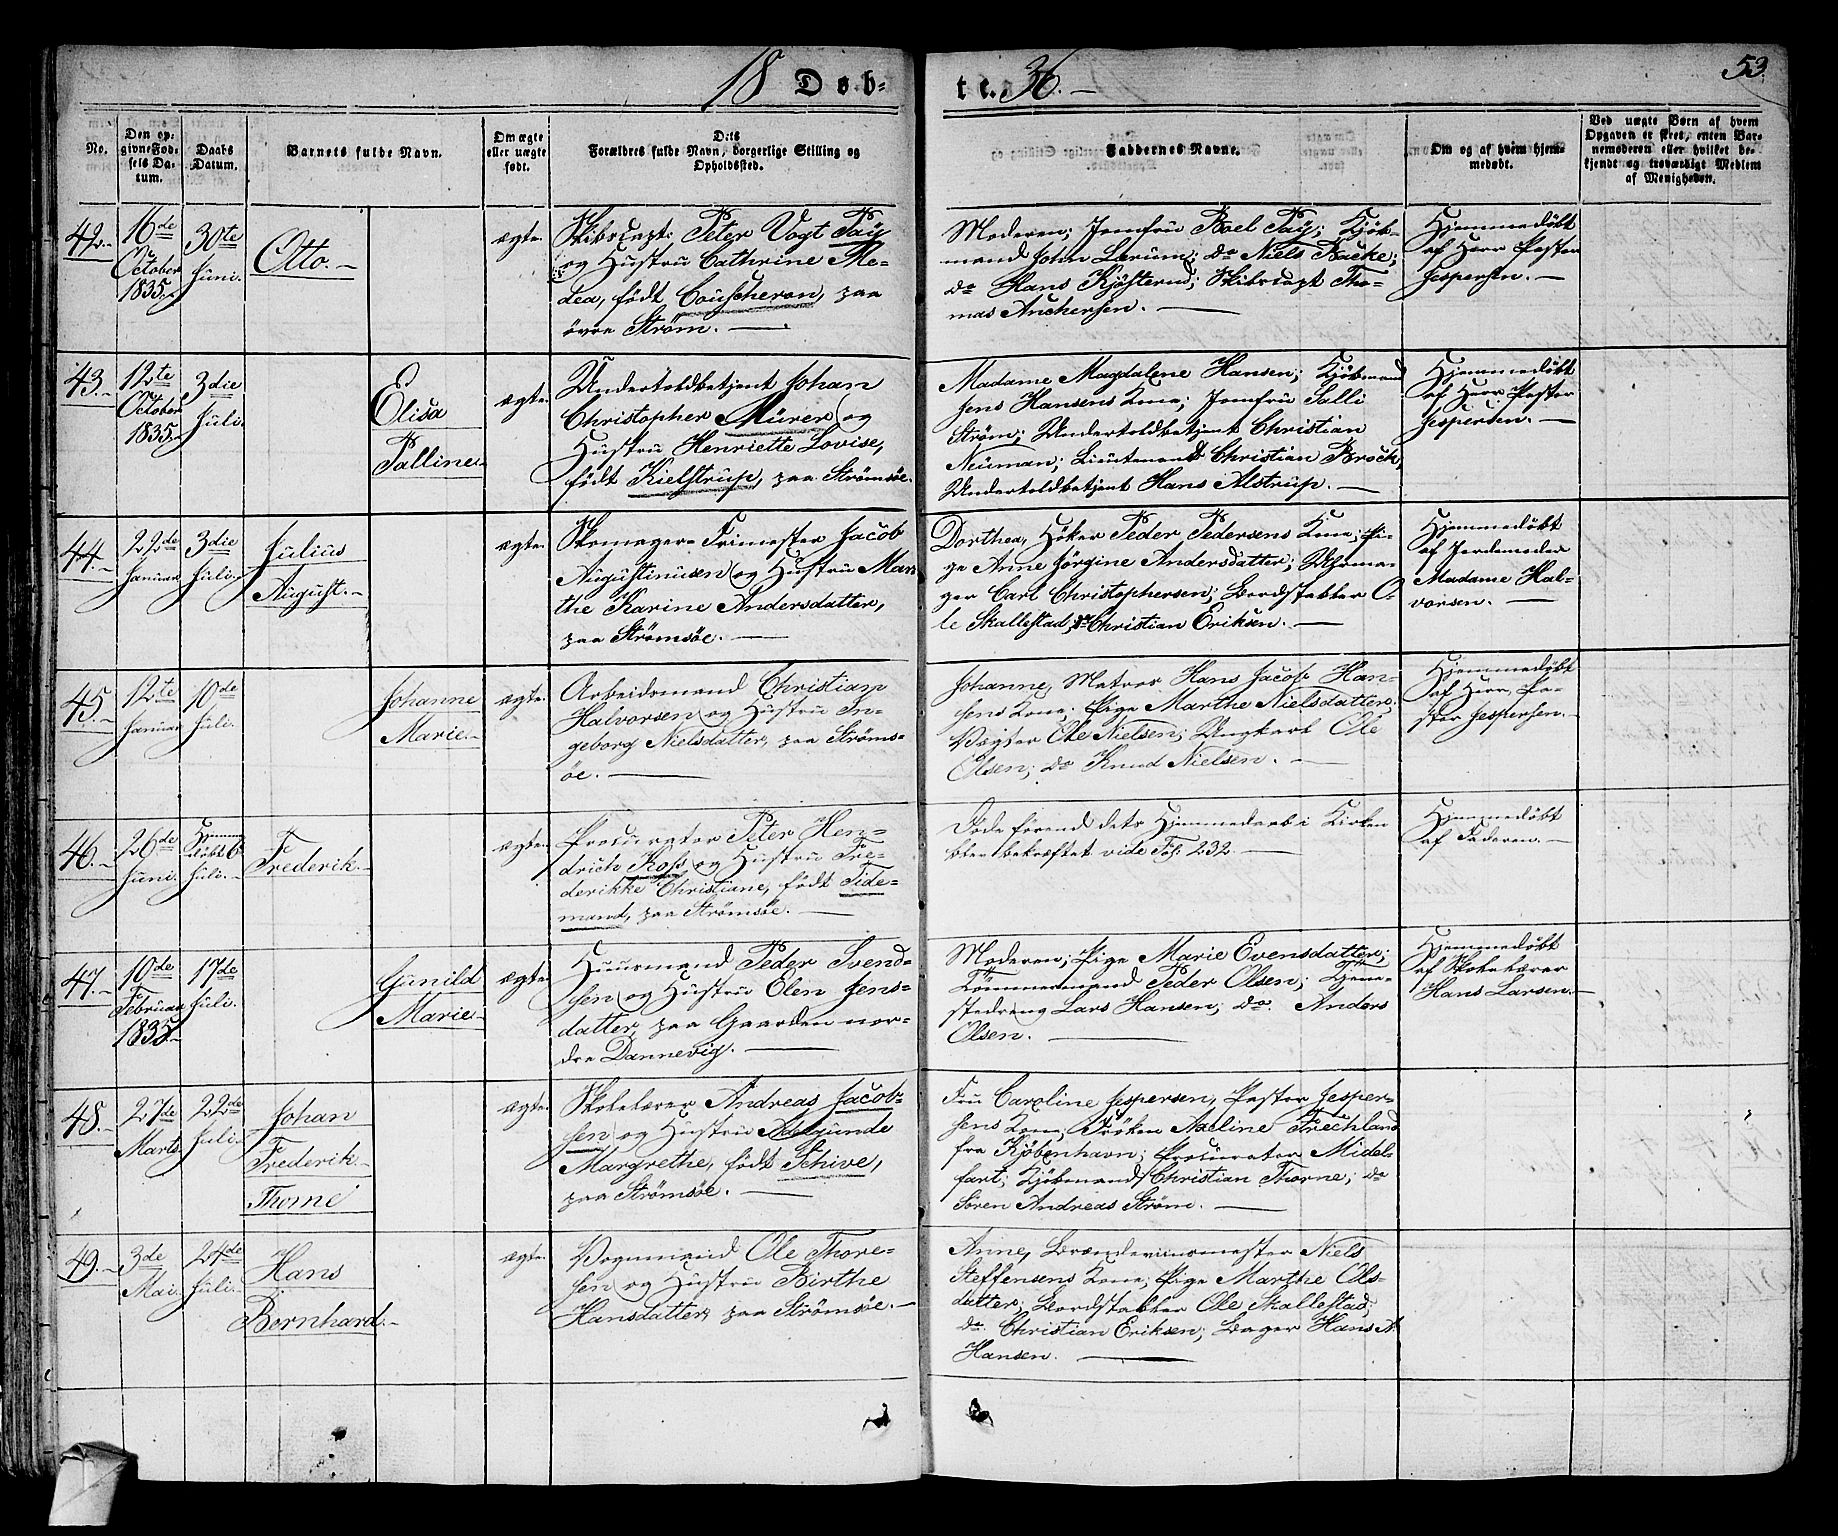 18 Døb-
te. 36.
53.
No.
Den op-
givne Fød-
sels Da-
tum.
Daabs
Datum.
Barnets fulde Navn.
Om ægte
eller uægte
født.
Dets
Forældres fulde Navn, borgerlige Stilling og
Opholdssted.
Faddernes Navne.
Om og af hvem hjem-
medøbt.
Ved uægte Børn af hvem
Opgaven er skeet, enten Bar-
nemoderen eller hvilket be-
kjendt og troværdigt Medlem
af Menigheden.
42.
16de
October
1835.
30te
Juni.
Otto.
ægte.
Skibscapt: Peter Vogt Paÿ
og Hustru Cathrine Me-
dea, født Couscheron, paa
øvre Strøm.
Moderen; Jomfru Boel Paÿ; Kjøb-
mand John Lerum; do Niels Backe;
do Hans Kjøsterud; Skibscapt Tho-
mas Anchersen.
Hjemmedøbt
af Herr Pastor
Jespersen.
43.
12te
October
1835.
3die
Juli.
Elisa
Palline.
ægte.
Undertoldbetjent Johan
Christopher Mürer og
Hustru Henriette Lovise,
født Kielstrup, paa Strømsøe.
Madame Magdalene Hansen; Kjøbmand
Jens Hansens Kone; Jomfru Salli
Strøm; Undertoldbetjent Christian
Neuman; Lieutenand Christian Brock,
Undertoldbetjent Hans Alstrup.
Hjemmedøbt
af Herr Pastor
Jespersen.
44.
22de
Januar
3die
Juli.
Julius
August.
ægte.
Skomager-Frimester Jacob
Augustinusen og Hustru Mar-
the Karine Andersdatter,
paa Strømsøe.
Dorthea, Høker Peder Pedersens Kone; Pi-
ge Anne Jørgine Andersdatter; Uhrma-
ger Carl Christophersen; Bordstabler O-
le Skallestad, do Christian Eriksen.
Hjemmedøbt
af Jordemoder
Madame Hal-
vorsen.
45.
12te
Januar
10de
Juli.
Johanne
Marie.
ægte.
Arbeidsmand Christian
Halvorsen og Hustru In-
geborg Nielsdatter, paa Strøms-
øe.
Johanne, Matros Hans Jacob Han-
sens Kone; Pige Marthe Nielsdatter;
Vægter Ole Nielsen; Ungkarl Ole
Olsen; do Knud Nielsen.
Hjemmedøbt
af Herr Pa-
stor Jespersen.
46.
26de
Juni.
Hjemme-
døbt 6
Juli.
Frederik.
ægte.
Procurator Peter Hen-
drich Koss og Hustru Fre-
derikke Christiane, født Tide-
mand, paa Strømsøe.
Døde førend dets Hjemmedaab i Kirken
blev bekræftet vide Fol: 232.
Hjemmedøbt
af Faderen.
47.
10de
Februar
1835.
17de
Juli.
Gunild
Marie.
ægte.
Huusmand Peder Svend-
sen og Hustru Olen Jens-
datter, paa Gaarden nor-
dre Dannevig.
Moderen; Pige Marie Evensdatter;
Tømmermand Peder Olsen; Tjene-
stedreng Lars Hansen; do. Anders
Olsen.
Hjemmedøbt
af Skolelærer
Hans Larsen.
48.
27de
Marts
22de
Juli.
Johan
Frederik
Thorne
ægte.
Skolelærer Andreas Jacob-
sen og Hustru Adelgunde
Margrethe, født Schive,
paa Strømsøe.
Fru Caroline Jespersen, Pastor Jesper-
sens Kone; Frøken Naeline Frechland
fra Kjøbenhavn; Procurator Midel-
fart; Kjøbmand Christian Thorne; do
Søren Andreas Strøm.
49.
3de
Mai.
24de
Juli.
Hans
Bernhard.
ægte.
Vognmand Ole Thore-
sen og Hustru Birthe
Hansdatter, paa Strømsøe.
Anne, Brændeviinsmester Niels
Steffensens Kone; Pige Marthe Ols-
datter; Bordstabler Ole Skallestad;
do. Christian Eriksen; Bager Hans A.
Hansen.